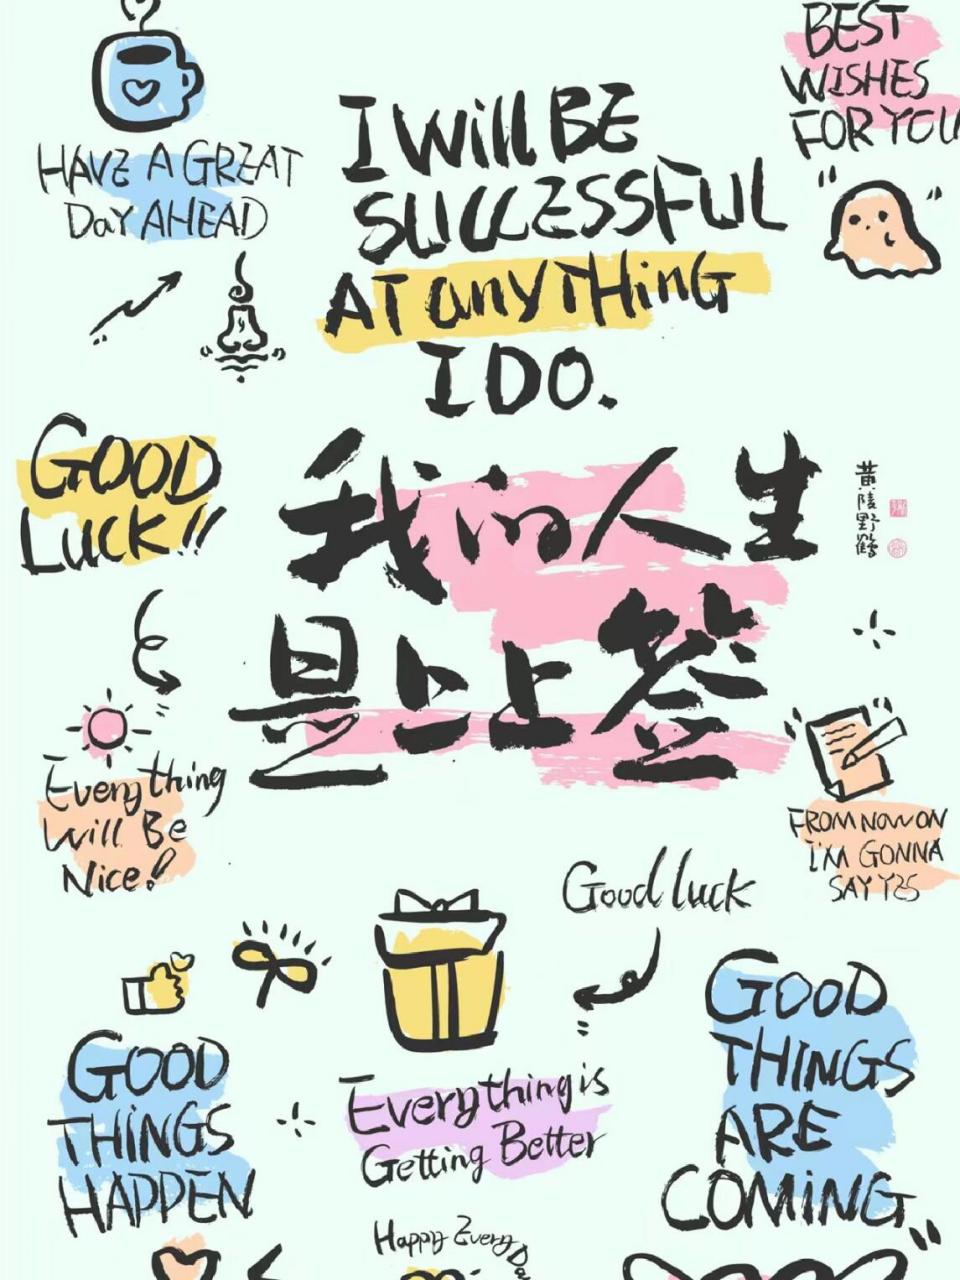 BEST
WISHES
FOR YOU
HAVE A GREAT
DaY AHEAD
I Will BE
SUCCESSFUL
AT anyTHinG
I DO.
GOOD
LUCK!!
我的人生
是上上签
黄陵野鹤
Everything
Will Be
Nice!
FROM NOW ON
I'M GONNA
SAY YES
Good luck
GOOD
THINGS
HAPPEN
Everything is
Getting Better
GOOD
THINGS
ARE
COMING
Happy Every Day